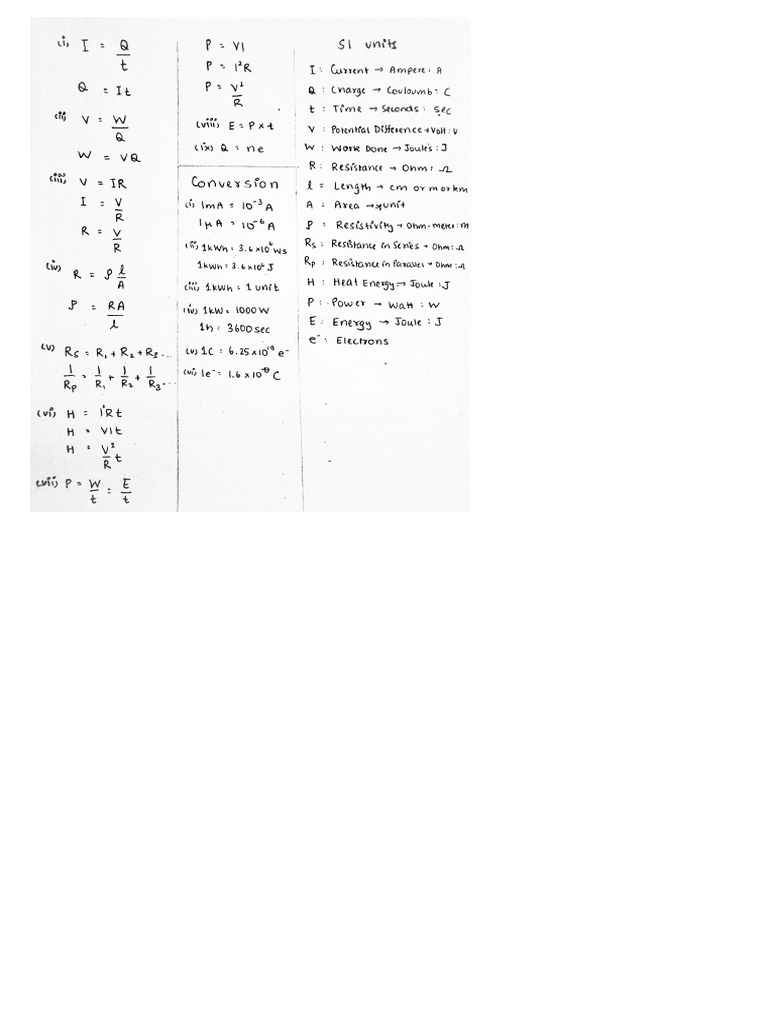 (i) I = Q/t
Q = It
(ii) V = W/Q
W = VQ
(iii) V = IR
I = V/R
R = V/R
(iv) R = ρ l/A
ρ = RA/l
(v) Rs = R1 + R2 + R3...
1/Rp = 1/R1 + 1/R2 + 1/R3...
(vi) H = I²Rt
H = VIt
H = V²/R t
(vii) P = W/t = E/t
P = VI
P = I²R
P = V²/R
(viii) E = P × t
(ix) Q = ne
Conversion
(i) 1mA = 10⁻³ A
1µA = 10⁻⁶ A
(ii) 1kWh = 3.6×10⁶ Ws
1kWh = 3.6×10⁶ J
(iii) 1kWh = 1 unit
(iv) 1kW = 1000 W
1h = 3600 sec
(v) 1C = 6.25×10¹⁸ e⁻
(vi) 1e⁻ = 1.6×10⁻¹⁹ C
SI units
I : Current → Ampere : A
Q : Charge → Couloumb : C
t : Time → Seconds : sec
V : Potential Difference → Volt : V
W : Work Done → Joules : J
R : Resistance → Ohm : Ω
l = Length → cm or m or km
A = Area → unit
ρ : Resistivity → Ohm-meter :
Rs : Resistance in Series → Ohm : Ω
Rp : Resistance in Parallel → Ohm : Ω
H : Heat Energy → Joule : J
P : Power → Watt : W
E : Energy → Joule : J
e⁻ : Electrons